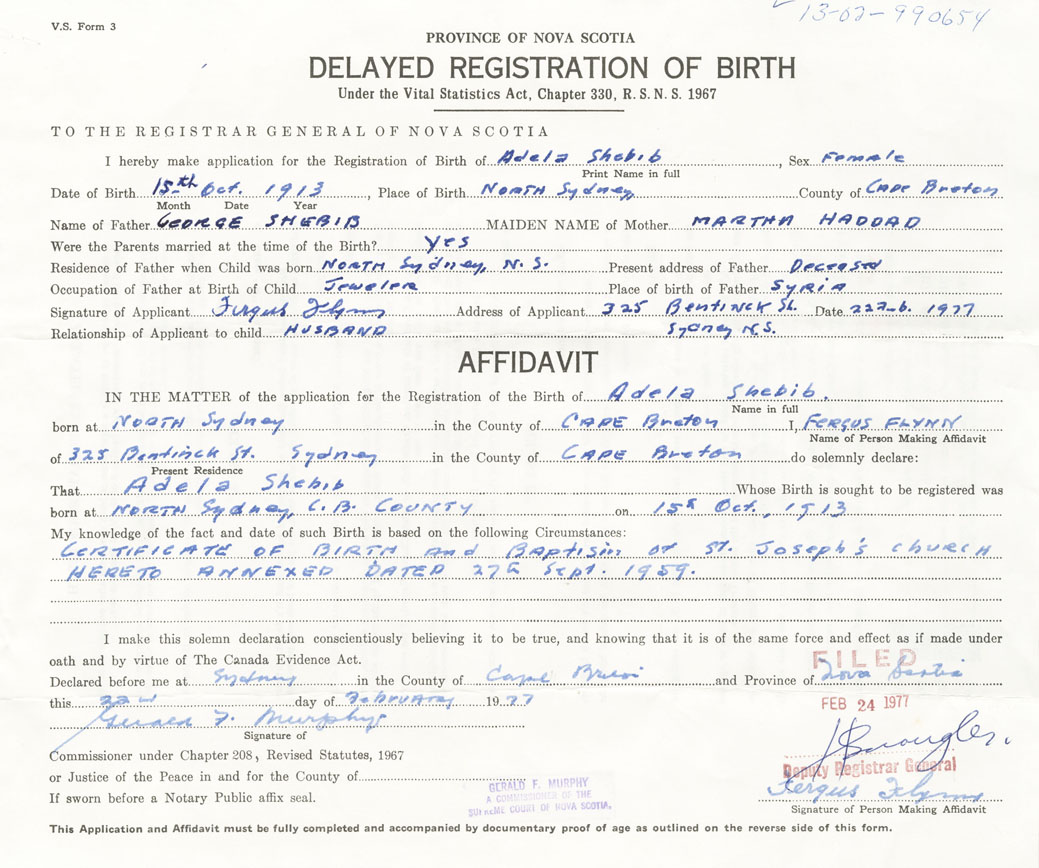 V.S. Form 3
13-02-990654
PROVINCE OF NOVA SCOTIA
DELAYED REGISTRATION OF BIRTH
Under the Vital Statistics Act, Chapter 330, R. S. N. S. 1967
TO THE REGISTRAR GENERAL OF NOVA SCOTIA
I hereby make application for the Registration of Birth of Adela Shebib, Sex Female
Print Name in full
Date of Birth 15th Oct. 1913, Place of Birth North Sydney County of Cape Breton
Month Date Year
Name of Father GEORGE SHEBIB MAIDEN NAME of Mother MARTHA HADDAD
Were the Parents married at the time of the Birth? Yes
Residence of Father when Child was born North Sydney, N. S. Present address of Father Deceased
Occupation of Father at Birth of Child Jeweler Place of birth of Father SYRIA
Signature of Applicant Fergus Flynn Address of Applicant 325 Bentinck St. Date 1977
Relationship of Applicant to child HUSBAND Sydney N.S.
AFFIDAVIT
IN THE MATTER of the application for the Registration of the Birth of Adela Shebib.
Name in full
born at North Sydney in the County of Cape Breton I, FERGUS FLYNN
Name of Person Making Affidavit
of 325 Bentinck St. Sydney in the County of Cape Breton do solemnly declare:
Present Residence
That Adela Shebib Whose Birth is sought to be registered was
born at North Sydney, C. B. County on 15th Oct., 1913
My knowledge of the fact and date of such Birth is based on the following Circumstances:
CERTIFICATE OF BIRTH and Baptism of St. Joseph's CHURCH
HERETO ANNEXED DATED 27th Sept. 1959.
I make this solemn declaration conscientiously believing it to be true, and knowing that it is of the same force and effect as if made under
oath and by virtue of The Canada Evidence Act.
FILED
Declared before me at Sydney in the County of Cape Breton and Province of Nova Scotia
this 22nd day of February 1977
FEB 24 1977
Gerald F. Murphy
Signature of
Commissioner under Chapter 208, Revised Statutes, 1967
Deputy Registrar General
or Justice of the Peace in and for the County of
GERALD F. MURPHY
A COMMISSIONER OF THE
SUPREME COURT OF NOVA SCOTIA.
Fergus Flynn
If sworn before a Notary Public affix seal.
Signature of Person Making Affidavit
This Application and Affidavit must be fully completed and accompanied by documentary proof of age as outlined on the reverse side of this form.